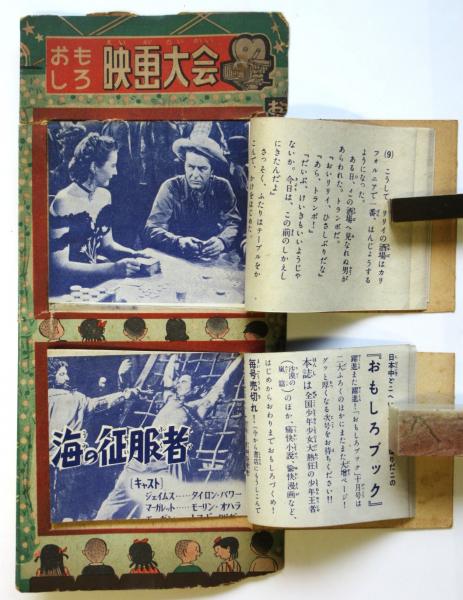 おもしろ
映画大会
えいがたいかい
お
(9) こうして、リリイの酒場はカリ
フォルニアで一番、はんじょうする
ようになった。
ある日、この酒場へ見なれぬ男が
あらわれた。トランポだ。
「おいリリイ、ひさしぶりだな」
「あら、トランポ!」
「だいぶ、けいきもいいようじゃ
ないか。今日は、この前のしかえし
にきたんだよ」
さっそく、ふたりはテーブルをか
こんで、かけをはじめた。
海の征服者
[キャスト]
ジェイムス……タイロン・パワー
マーガレット……モーリン・オハラ
日本中どこへ
『おもしろブック』
躍進また躍進!「おもしろブック」十月号は
二大ふろくのほかにまたまた大増ページ!
グッと厚くなる次号をお待ちください!!
本誌は全国少年少女大熱狂の少年王者
のほか、痛快小説、愉快漫画など、
はじめからおわりまでおもしろづくめ!
毎号売切れ!